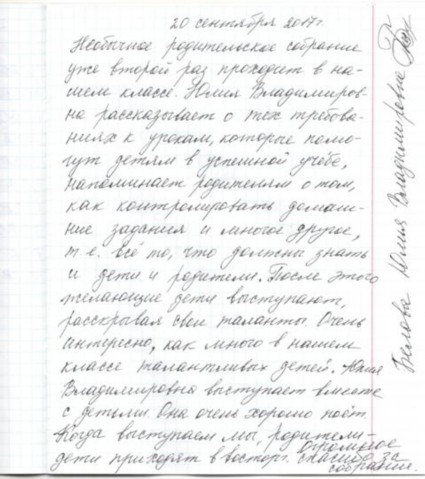 20 сентября 2017г.
Необычное родительское собрание
уже второй раз проходит в на-
шем классе. Юлия Владимиров-
на рассказывает о тех требова-
ниях к урокам, которые помо-
гут детям в успешной учебе,
напоминает родителям о том,
как контролировать домаш-
ние задания и многое другое,
т.е. всё то, что должны знать
и дети и родители. После этого
желающие дети выступают,
расскрывая свои таланты. Очень
интересно, как много в нашем
классе талантливых детей. Юлия
Владимировна выступает вместе
с детьми. Она очень хорошо поёт.
Когда выступаем мы, родители-
дети приходят в восторг. Огромное
спасибо за
собрания.
Белова Юлия Владимировна